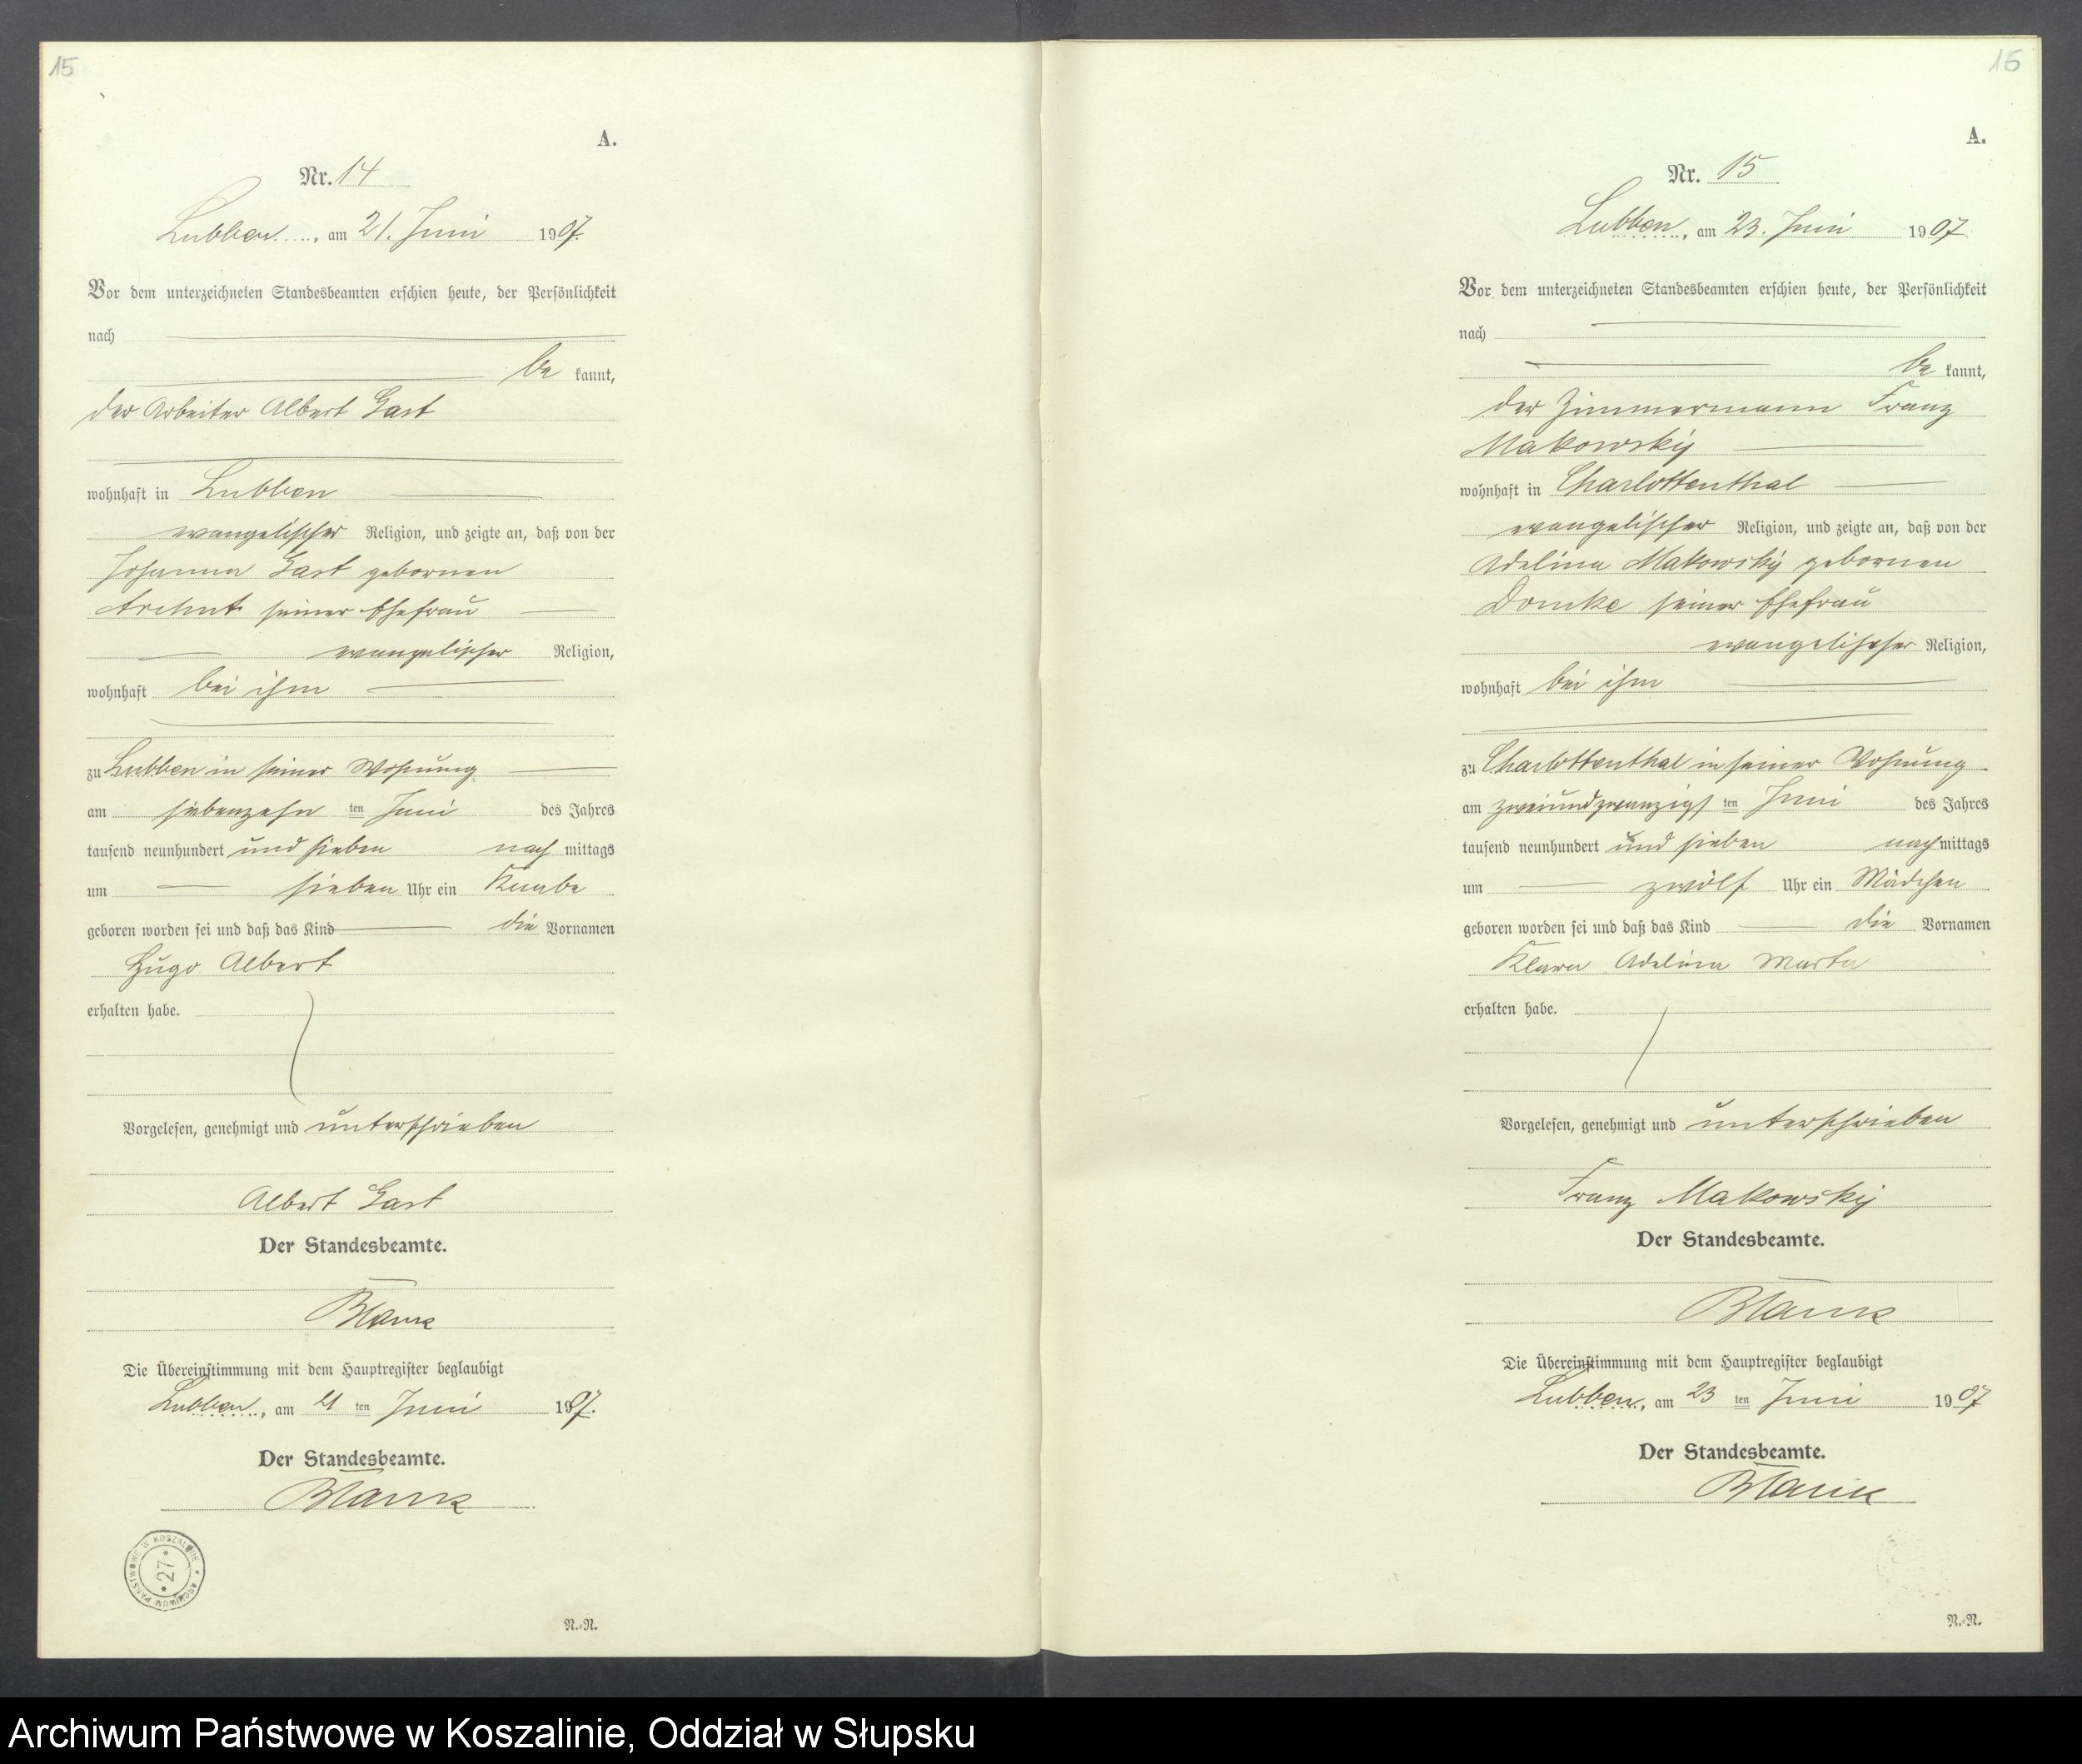 15
A.
Nr. 14
Lubben, am 21. Juni 1907.
Vor dem unterzeichneten Standesbeamten erschien heute, der Persönlichkeit
nach
be kannt,
der Arbeiter Albert Gast
wohnhaft in Lubben
evangelischer Religion, und zeigte an, daß von der
Johanna Gast geborenen
seiner Ehefrau
evangelischer Religion,
wohnhaft bei ihm
zu Lubben in seiner Wohnung
am siebenzehn ten Juni des Jahres
tausend neunhundert und sieben nach mittags
um sieben Uhr ein Knabe
geboren worden sei und daß das Kind die Vornamen
Hugo Albert
erhalten habe.
Vorgelesen, genehmigt und unterschrieben
Albert Gast
Der Standesbeamte.
Die Übereinstimmung mit dem Hauptregister beglaubigt
Lubben, am 21 ten Juni 1907.
Der Standesbeamte.
ARCHIWUM PAŃSTWOWE W KOSZALINIE
* 27 *
N.=N.
16
A.
Nr. 15
Lubben, am 23. Juni 1907
Vor dem unterzeichneten Standesbeamten erschien heute, der Persönlichkeit
nach
be kannt,
der Zimmermann Franz
Makowskÿ
wohnhaft in Charlottenthal
evangelischer Religion, und zeigte an, daß von der
Adeline Makowskÿ geborenen
Domke seiner Ehefrau
evangelischer Religion,
wohnhaft bei ihm
zu Charlottenthal in seiner Wohnung
am zweiundzwanzigs ten Juni des Jahres
tausend neunhundert und sieben nach mittags
um zwölf Uhr ein Mädchen
geboren worden sei und daß das Kind die Vornamen
Klara Adeline Marta
erhalten habe.
Vorgelesen, genehmigt und unterschrieben
Franz Makowskÿ
Der Standesbeamte.
Die Übereinstimmung mit dem Hauptregister beglaubigt
Lubben, am 23 ten Juni 1907
Der Standesbeamte.
N.=N.
Archiwum Państwowe w Koszalinie, Oddział w Słupsku